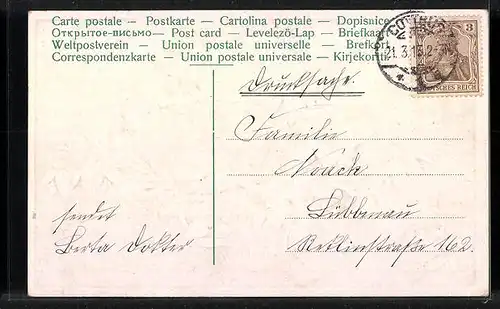 Carte postale - Postkarte - Cartolina postale - Dopisnice
Открытое-письмо - Post card - Levelező-Lap - Briefkaart
Weltpostverein - Union postale universelle - Brefkort
Correspondenzkarte - Union postale universale - Kirjekortti
COTTBUS
21.3.13.2-
3
DEUTSCHES REICH
Drucksache.
Familie
Noack
Lübbenau
162.
sendet
Berta Dokter